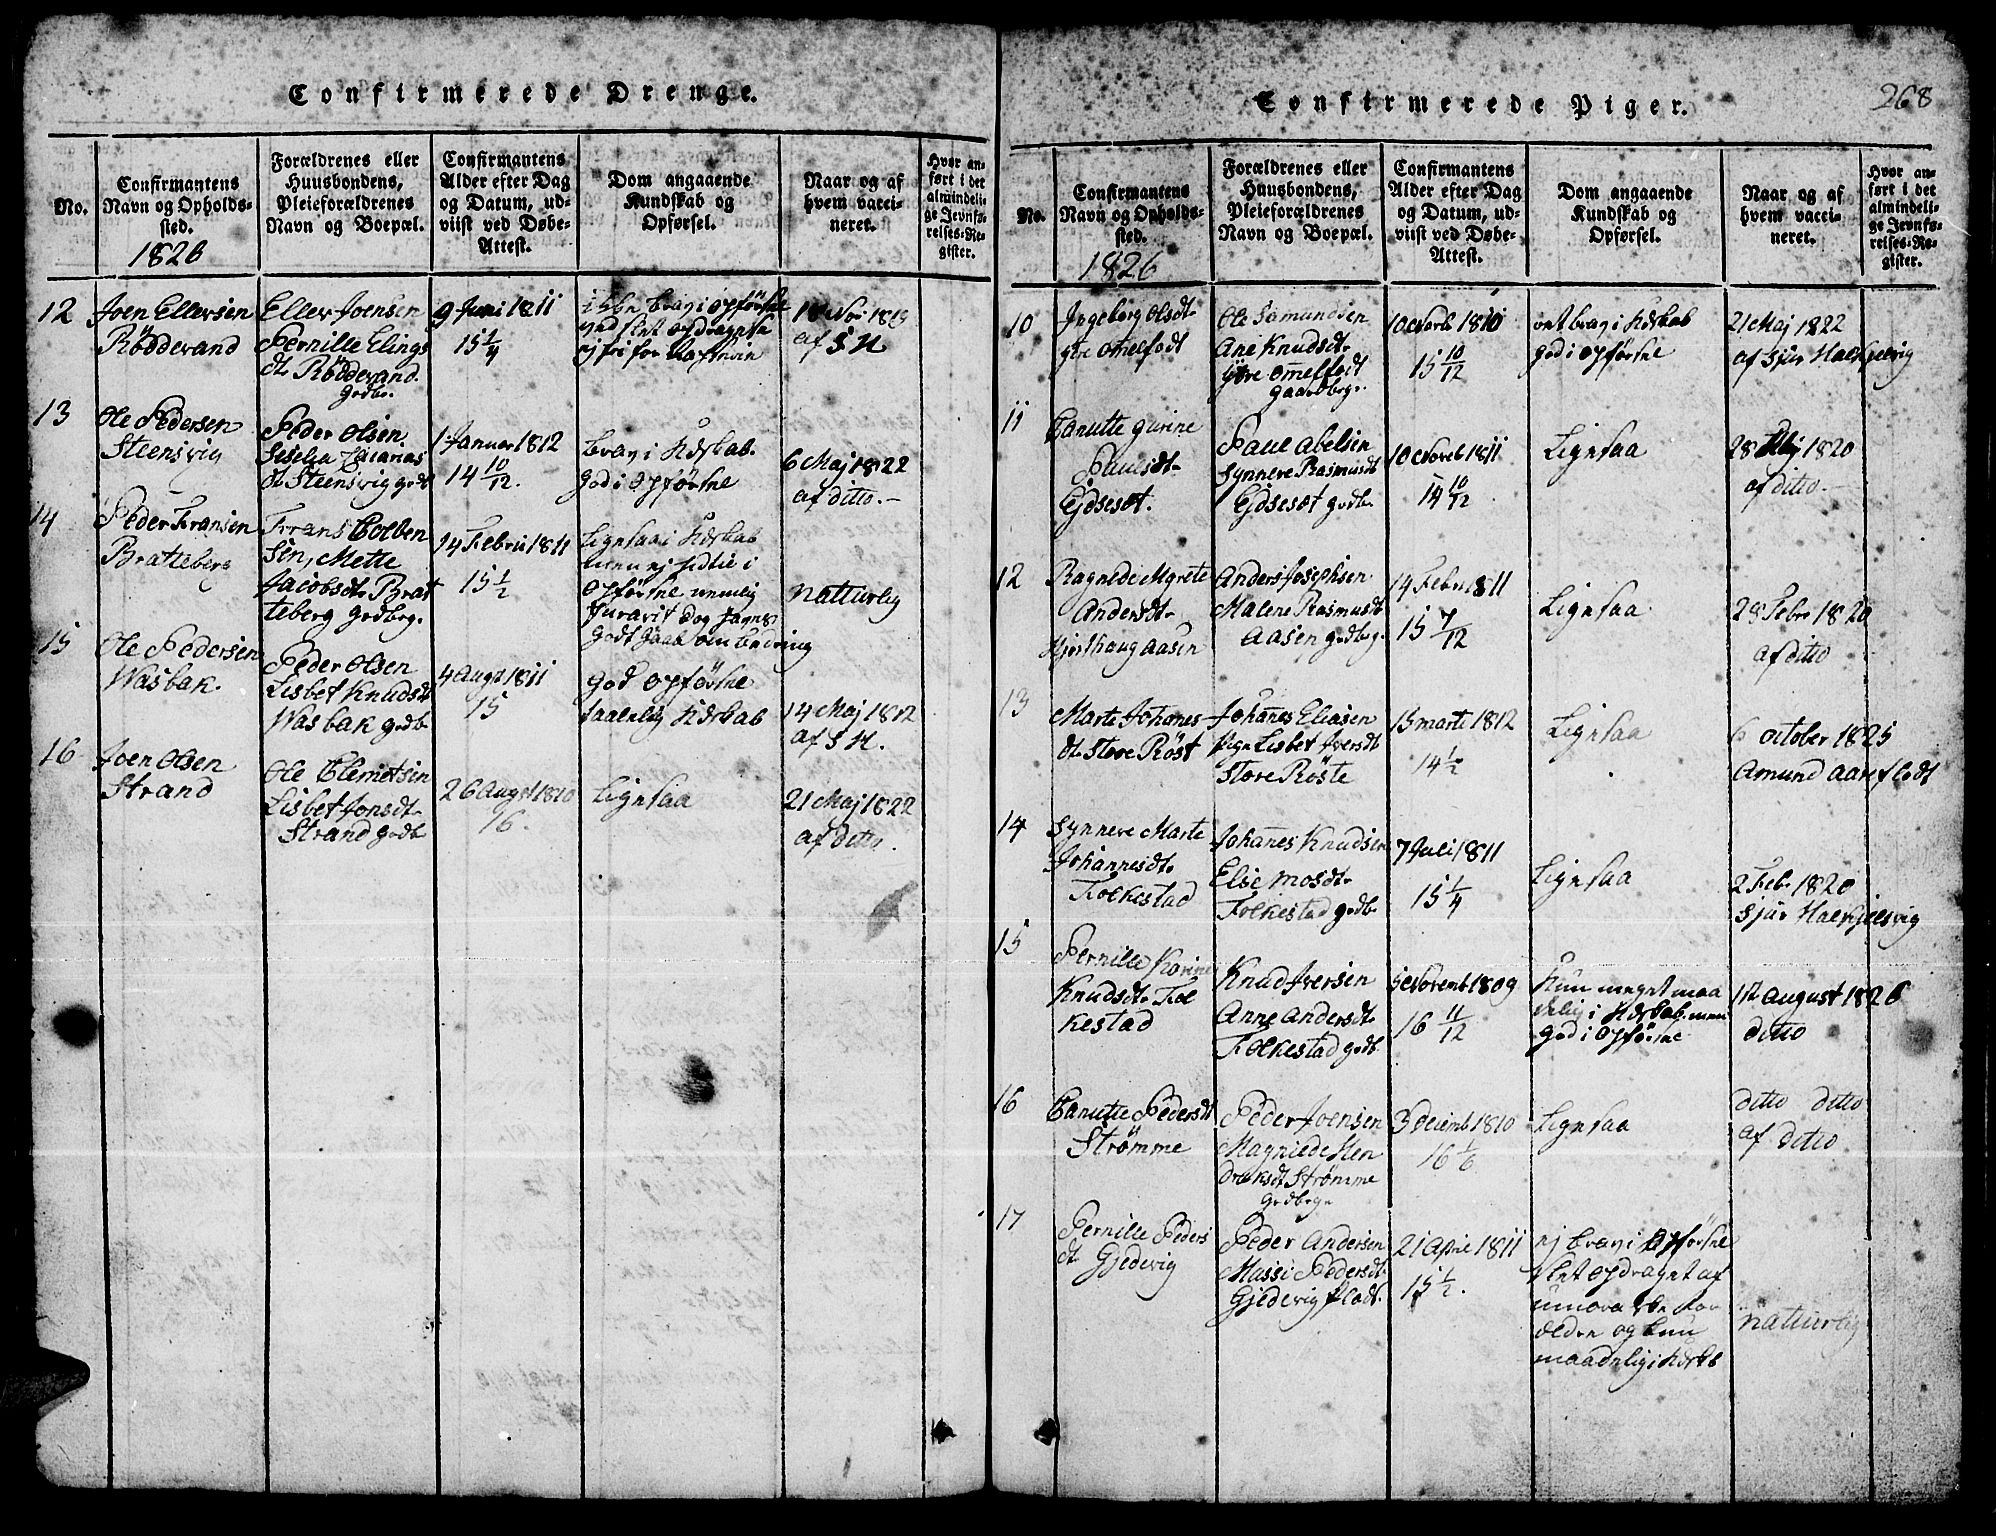 Confirmerede Drenge.
No.
Confirmantens
Navn og Opholds-
sted.
1826
Forældrenes eller
Huusbondens,
Pleieforældrenes
Navn og Boepæl.
Confirmantens
Alder efter Dag
og Datum, ud-
viist ved Døbe-
Attest.
Dom angaaende
Kundskab og
Opførsel.
Naar og af
hvem vacci-
neret.
Hvor an-
ført i det
almindeli-
ge Jevnfø-
relses-Re-
gister.
12
Joen Ellersen
Rödderand
Eller Joensen
Pernille Elings
dt. Rödderand
Gedbr.
9 Juni 1811
15 1/4
af S H
13
Ole Pedersen
Steensvig
Peder Olsen
Zacarias
dt. Steensvig gedb
1 Januar 1812
14 10/12.
brav i Kdskab.
God i Opførsne
6 Maj 1822
af ditto.-
14
Peder Fransen
Bratteberg
Frans Colben
sen, Mette
Jacobsdt. Brat
teberg gedbg.
14 Febru 1811
15 1/2
Lignsaa i Kdskab
Opførsne nemlig
Natturlig
15
Ole Pedersen
Wasbak.
Peder Olsen
Lisbet Knudsdt
Wasbak gedb
4 Augs 1811
15
God Opførsne
taalelig Kdskab
14 Maj 1812
af S H.
16
Joen Olsen
Strand
Ole Clemetsen
Lisbet Jonsdt.
Strand gedb
26 Augst 1810
16.
Lignsaa
21 Maj 1822
af ditto.
Confirmerede Piger.
268
No.
Confirmantens
Navn og Opholds-
sted.
1826
Forældrenes eller
Huusbondens,
Pleieforældrenes
Navn og Boepæl.
Confirmantens
Alder efter Dag
og Datum, ud-
viist ved Døbe-
Attest.
Dom angaaende
Kundskab og
Opførsel.
Naar og af
hvem vacci-
neret.
Hvor an-
ført i det
almindeli-
ge Jevnfø-
relses-Re-
gister.
10
Ingeborg Olsdt.
ytre Omelfodt
Ole Samundsen
Ane Knudsdt.
ytre Omelfodt
gaardbrg.
10 Novbr 1810
15 10/12
brav i Kdskab
god i Opførsne
21 Maj 1822
af Sjur Halkjelvig
11
Canutte Gurine
Paulsdt.
Ejdseset.
Paul Abelsen
Synneve Rasmusdt
Ejdseset gedb.
10 Noveb 1811
14 10/12
Lignsaa
28 Maj 1820
af ditto
12
Ragnede Mgrete
Andersdt.
Hjorthaug Aasen
Anders Josephsen
Malene Rasmusdt
Aasen gedbrg.
14 Febru 1811
15 7/12
Lignsaa
28 Febr 1820
af ditto
13
Marte Johanes
dt. Store Röst
Johanes Eliasen
Lisbet Iversdt
Store Röste
15 marti 1812
14 1/2
Lignsaa
6 October 1825
Amund Aareflodt
14
Synneve Marte
Johannesdt.
Folkestad
Johanes Knudsen
Else Mosdt.
Folkestad gedb
7 Juli 1811
15 1/4
Lignsaa
2 Feb. 1820
Sjur Halkjelsvig
15
Pernille Karine
Knudsdt. Fol
kestad
Knud Iversen
Anne Andersdt.
Folkestad gedb
5 Novemb 1809
16 11/12
Kun meget maa
delig i Kdskab men
God i Opförsne
112 August 1826
ditto
16
Canutte Pedersdt
Strømme
Peder Joensen
Magniede Hen
dreksdt Strømme
Gedbrgr
3 Decemb 1810
16 1/6
Lignsaa
ditto ditto
af ditto
17
Pernille Peders
dt. Gjedevig
Peder Andersen
Massi Pedersdt.
Gjedevig
21 April 1811
15 1/2.
ej brav i Opførsne
slet opdraget af
umoralske For
ældre og kun
maadelig i Kdskb
Natturlig